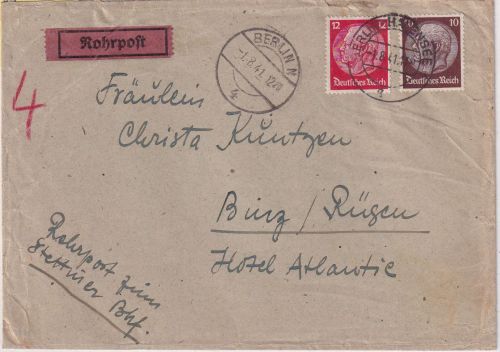 Rohrpost
BERLIN N
-1.8.41.12
4
12 12
Deutsches Reich
10
Deutsches Reich
8.41
4
Fräulein
Christa Kuntzen
Binz / Rügen
Hotel Atlantic
Rohrpost zum
Stettiner Bhf.